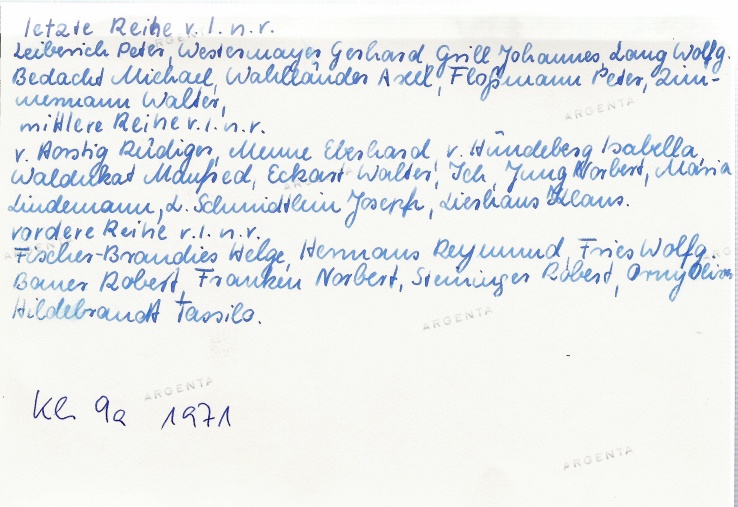 letzte Reihe v.l.n.r.
Leiberich Peter, Westermayer Gerhard, Grill Johannes, Lang Wolfg.
Bedacht Michael, Wahlländer Axel, Floßmann Peter, Zim-
mermann Walter,
mittlere Reihe v.l.n.r.
v. Horstig Rüdiger, Menne Eberhard, v. Hündeberg Isabella,
Waldukat Manfred, Eckart Walter, Ich, Jung Norbert, Maria
Lindemann, L. Schmidtlein Joseph, Lieshaus Klaus.
vordere Reihe v.l.n.r.
Fischer-Brandies Helge, Hermans Reymund, Fries Wolfg.
Bauer Robert, Franken Norbert, Steininger Robert, Orny Oliver
Hildebrandt Tassilo.
ARGENTA
ARGENTA
ARGENTA
Kl. 9a 1971
ARGENTA